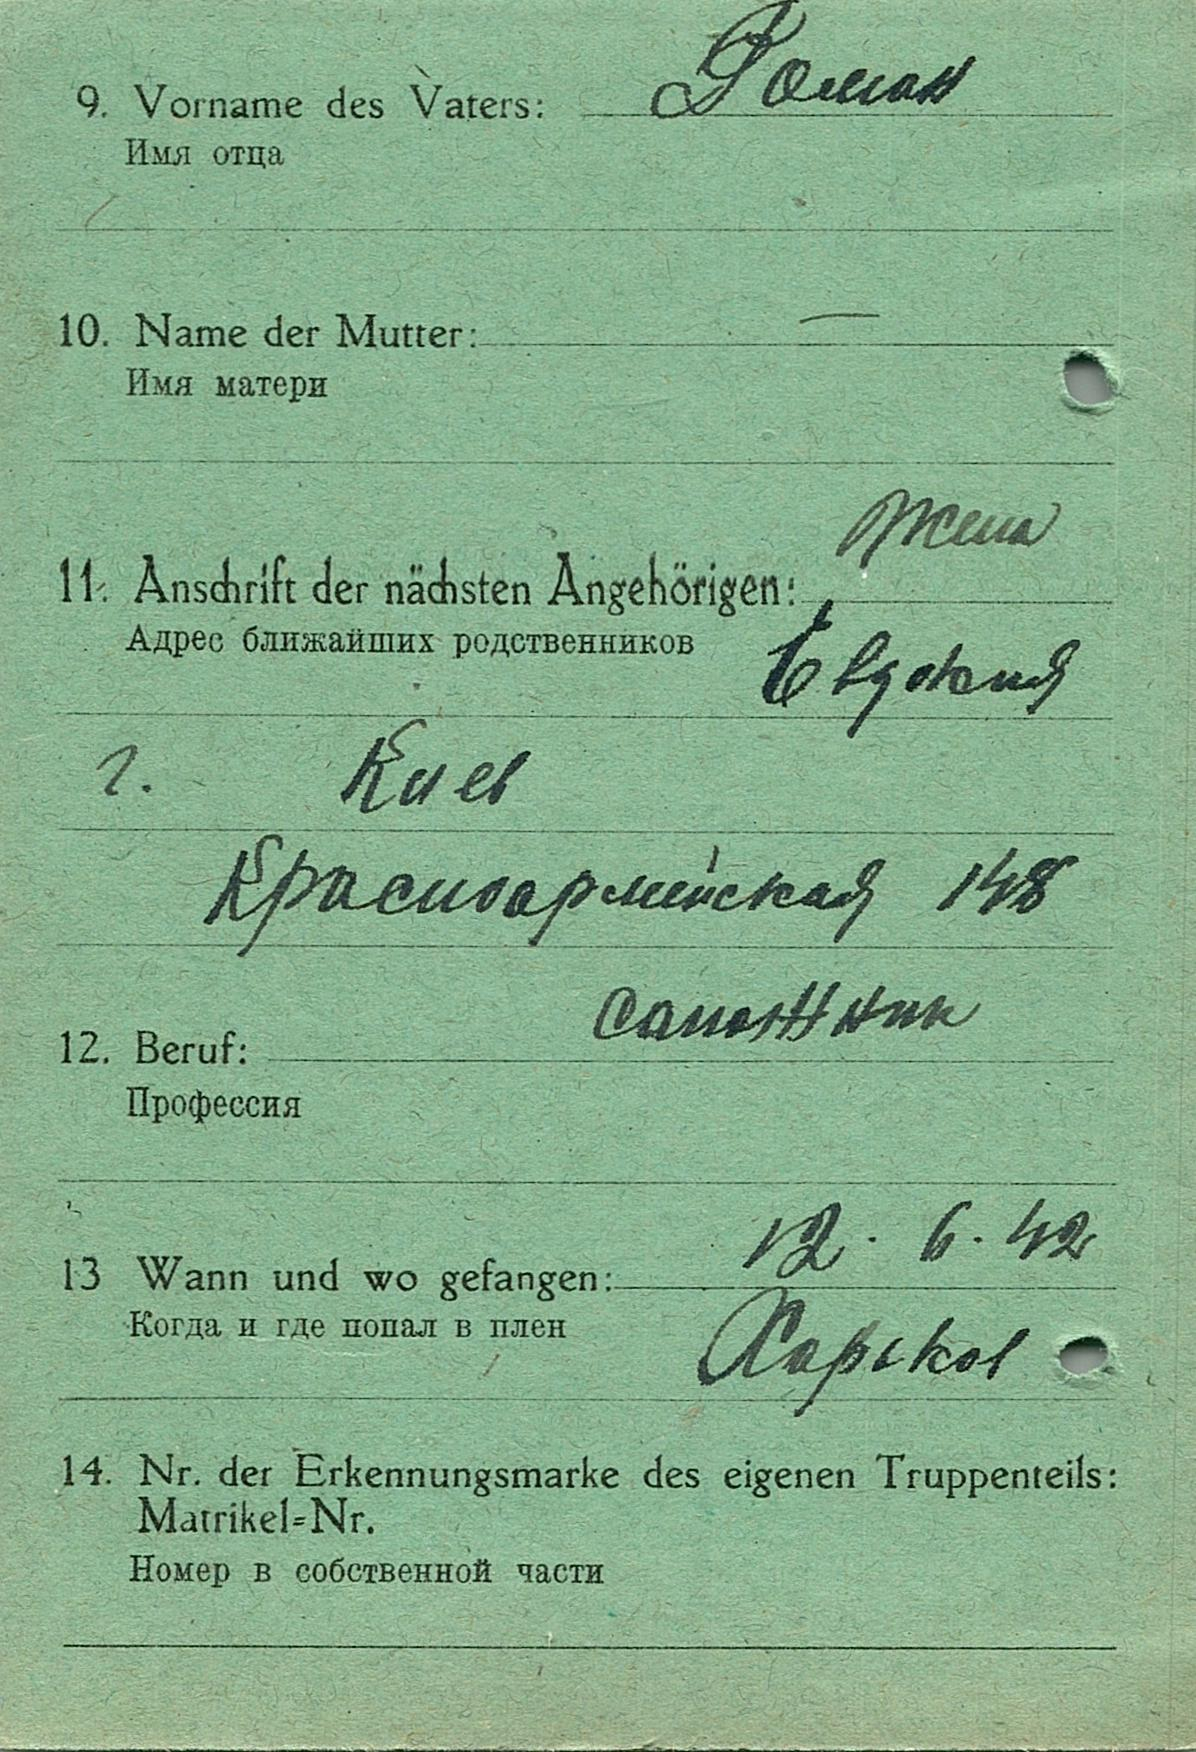 9. Vorname des Vaters: Роман
Имя отца
10. Name der Mutter: —
Имя матери
жена
11. Anschrift der nächsten Angehörigen:
Адрес ближайших родственников Евдокия
г. Киев
Красноармейская 148
12. Beruf: сапожник
Профессия
13 Wann und wo gefangen: 12. 6. 42
Когда и где попал в плен Харьков
14. Nr. der Erkennungsmarke des eigenen Truppenteils:
Matrikel=Nr.
Номер в собственной части